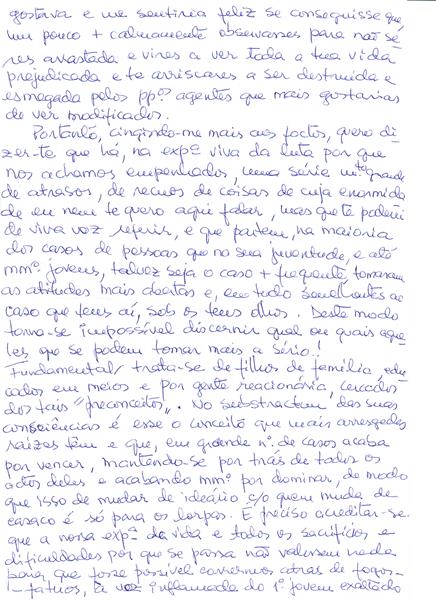 gostava e me sentiria feliz se conseguisse que
um pouco + calmamente observasses para não se-
res arrastada e vires a ver toda a tua vida
prejudicada e te arriscares a ser destruída e
esmagada pelos ppºs agentes que mais gostarias
de ver modificados.
Portanto, cingindo-me mais aos factos, quero di-
zer-te que há, na expª viva da luta por que
nos achamos empenhados, uma série mtº grande
de atrasos, de recuos de coisas de cuja enormida-
de eu nem te quero aqui falar, mas que te poderei
de viva voz referir, e que partem, na maioria
dos casos de pessoas que na sua juventude, e até
mmº jovens, talvez seja o caso + frequente, tomaram
as atitudes mais abertas e, em tudo semelhantes ao
caso que tens aí, sob os teus olhos. Deste modo
torna-se impossível discernir qual ou quais aque-
les que se podem tomar mais a sério!
Fundamental/ trata-se de filhos de família, edu-
cados em meios e por gente reacionária, cercados
dos tais "preconceitos". No substractum das suas
consciências é esse o conceito que mais arreigadas
raízes têm e que, em grande nº. de casos acaba
por vencer, mantendo-se por trás de todos os
actos deles e acabando mmº por dominar, de modo
que isso de mudar de ideário c/o quem muda de
casaco é só para os lorpas. É preciso acreditar-se
que a nossa expª da vida e todos os sacrifícios e
dificuldades por que se passa não valessem nada
para que fosse possível corrermos atrás de fogos-
-fatuos, à voz inflamada do 1º jovem exaltado